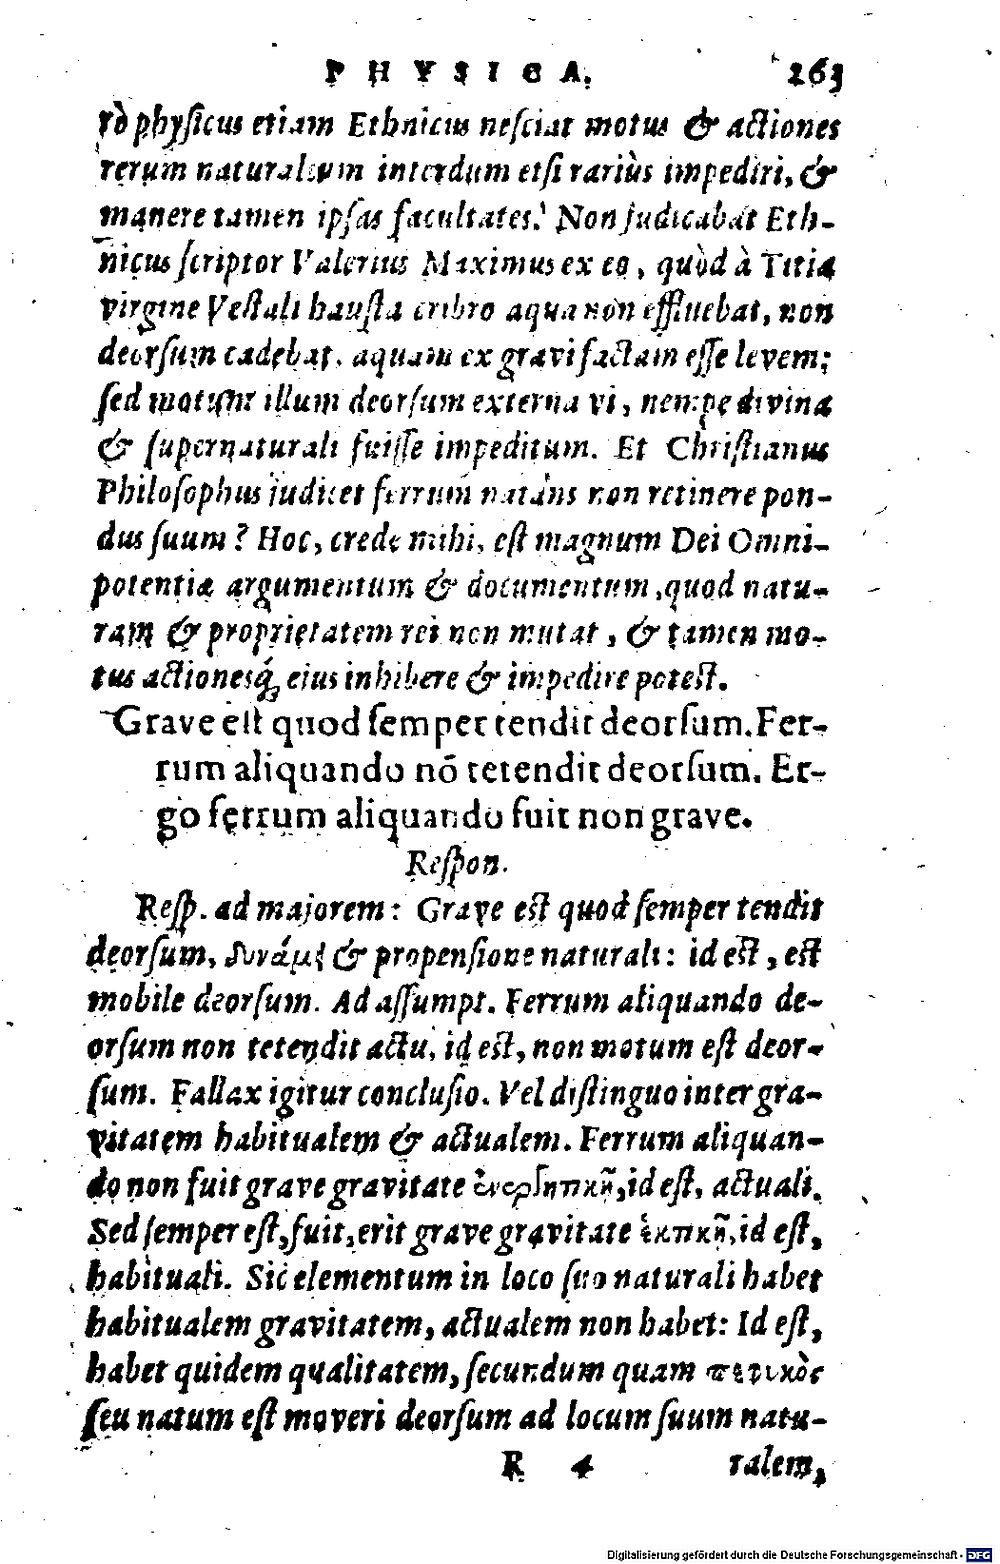 PHYSICA. 263
rò physicus etiam Ethnicus nesciat motus & actiones
rerum naturalium interdum etsi rariùs impediri, &
manere tamen ipsas facultates? Non judicabat Eth-
nicus scriptor Valerius Maximus ex eo, quòd à Titia
virgine Vestali hausta cribro aqua non effluebat, non
deorsum cadebat, aquam ex gravi factam esse levem;
sed motum illum deorsum externa vi, nempe divina
& supernaturali fuisse impeditum. Et Christianus
Philosophus judicet ferrum natans non retinere pon-
dus suum? Hoc, crede mihi, est magnum Dei Omni-
potentiæ argumentum & documentum, quod natu-
ram & proprietatem rei non mutat, & tamen mo-
tus actionesq́; ejus inhibere & impedire potest.
Grave est quod semper tendit deorsum. Fer-
rum aliquando nõ tetendit deorsum. Er-
go ferrum aliquando fuit non grave.
Respon.
Resp. ad majorem: Grave est quod semper tendit
deorsum, δυνάμει & propensione naturali: id est, est
mobile deorsum. Ad assumpt. Ferrum aliquando de-
orsum non tetendit actu, id est, non motum est deor-
sum. Fallax igitur conclusio. Vel distinguo inter gra-
vitatem habitualem & actualem. Ferrum aliquan-
do non fuit grave gravitate ἐνεργητικῇ, id est, actuali.
Sed semper est, fuit, erit grave gravitate ἑκτικῇ, id est,
habituali. Sic elementum in loco suo naturali habet
habitualem gravitatem, actualem non habet: Id est,
habet quidem qualitatem, secundum quam πεφυκὸς
seu natum est moveri deorsum ad locum suum natu-
R 4 ralem,
Digitalisierung gefördert durch die Deutsche Forschungsgemeinschaft - DFG